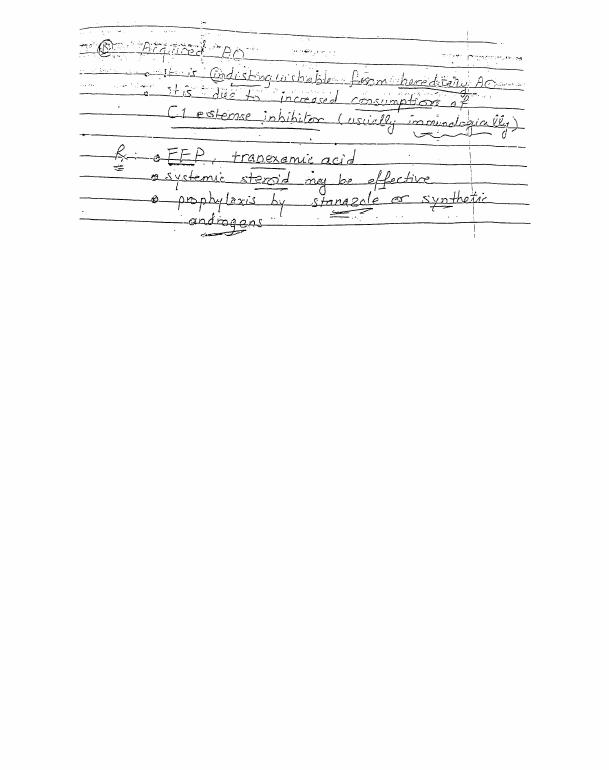 Ⓑ Acquired AO
• It is indistinguishable from hereditary AO
• It is due to increased consumption of
C1 esterase inhibitor (usually immunologically)
R: • FFP, tranexamic acid
• systemic steroid may be effective
• prophylaxis by stanazole or synthetic
androgens